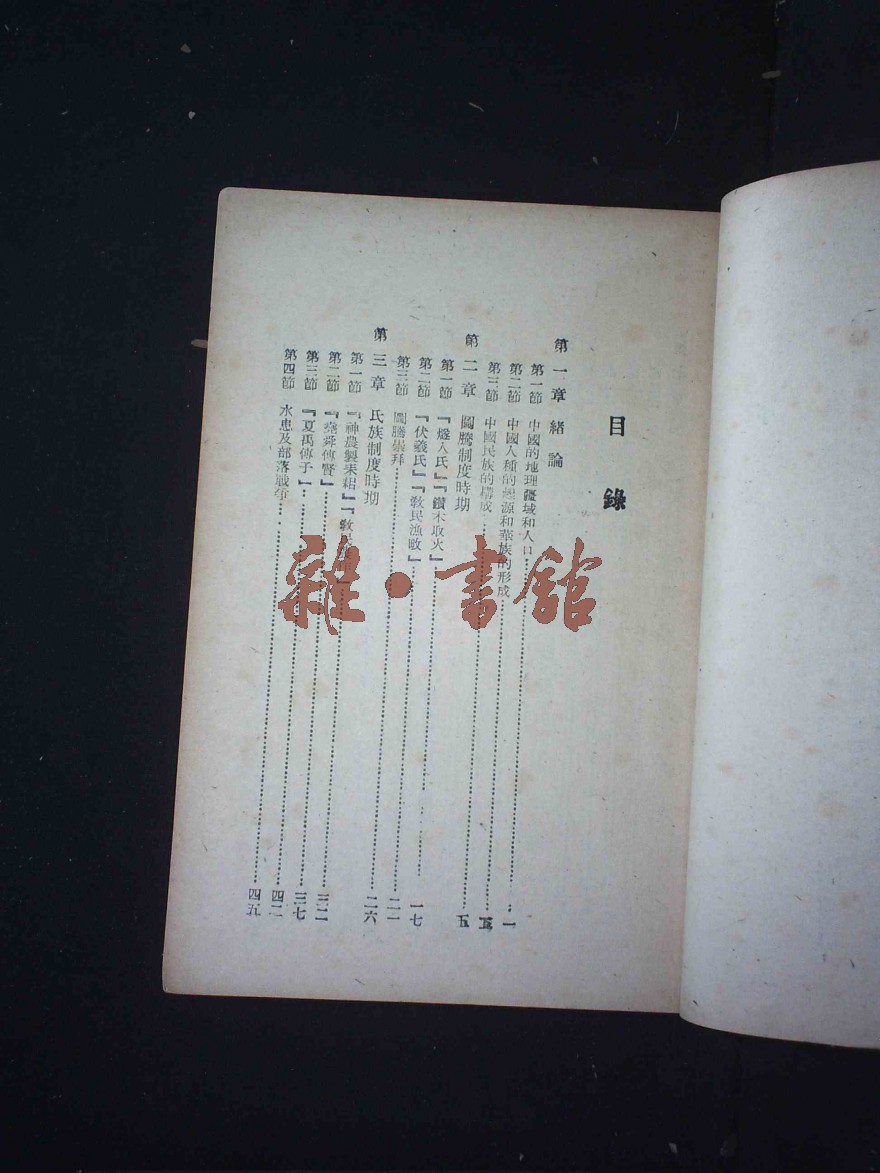 目錄
第一章 緒論
第一節 中國的地理疆域和人口 一
第二節 中國人種的起源和華族的形成
第三節 中國民族的構成 五
第二章 圖騰制度時期
第一節 『燧人氏』『鑽木取火』 一七
第二節 『伏羲氏』『教民漁畋』 二一
第三節 圖騰崇拜 二六
第三章 氏族制度時期
第一節 『神農製耒耜』『教民
第二節 『堯舜傳賢』 三七
第三節 『夏禹傳子』 四二
第四節 水患及部落戰爭 四九
雜·書館